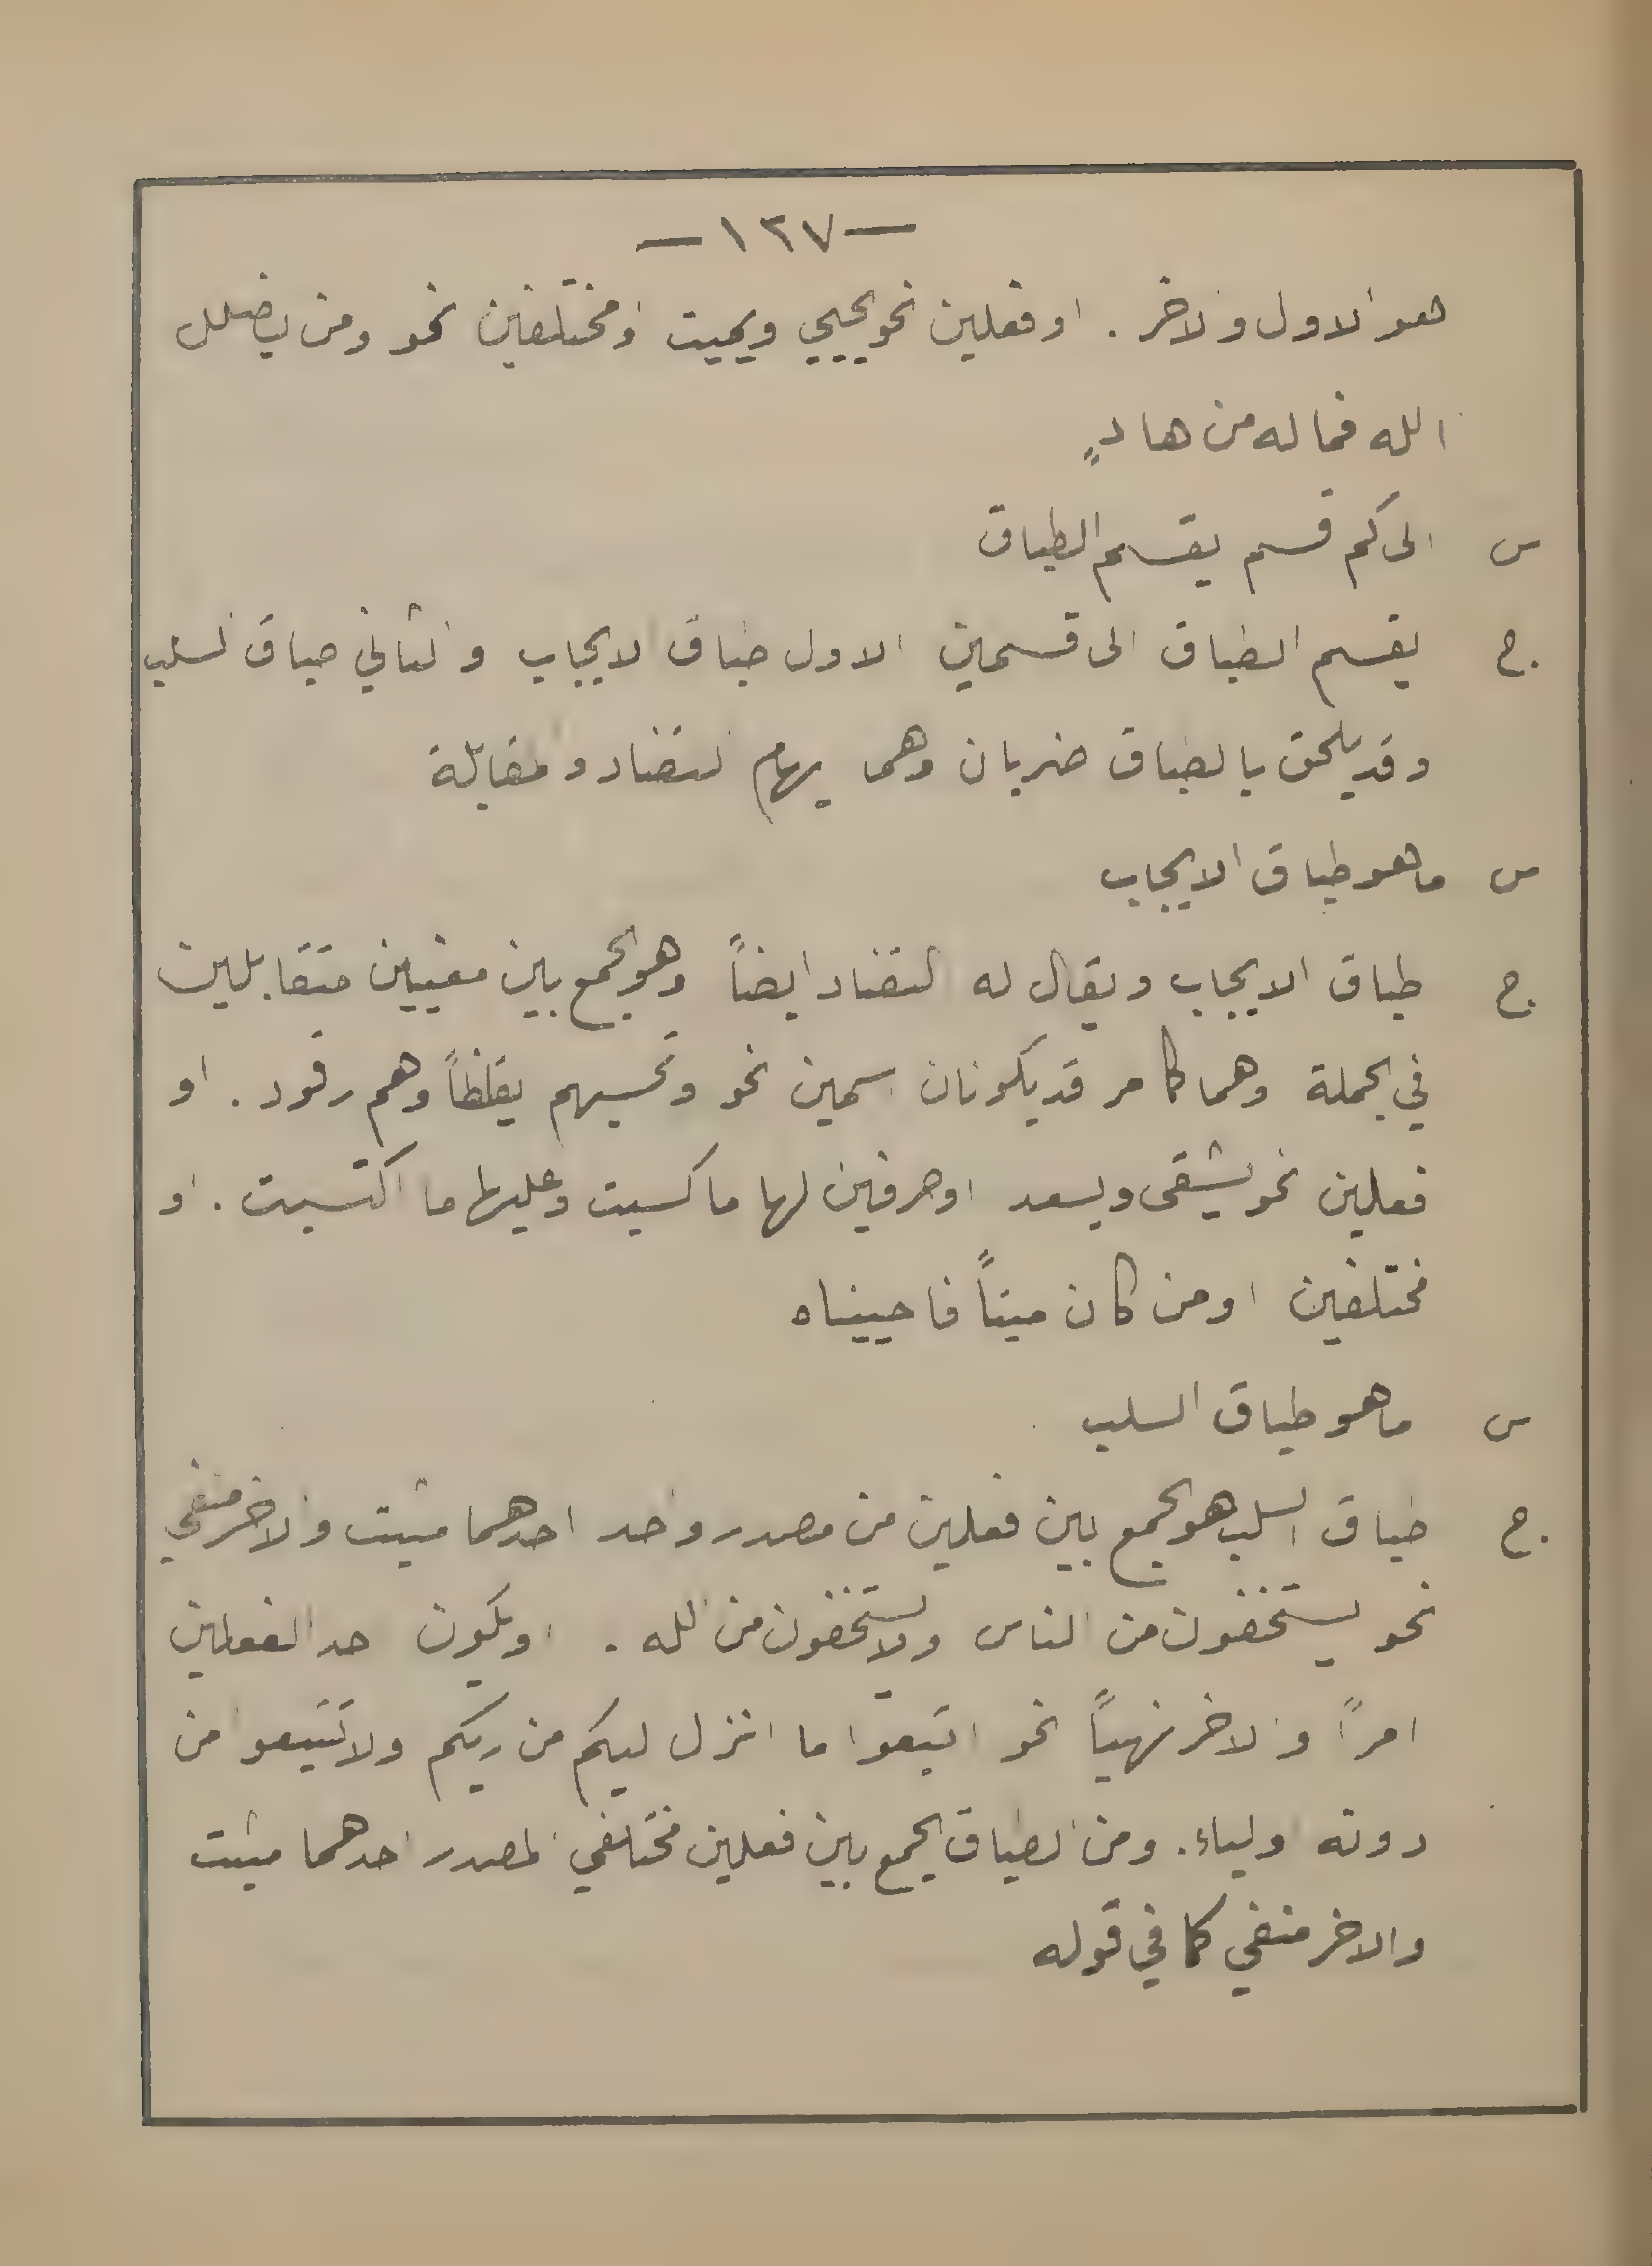 —١٢٧—
هو الاول والاخر . او فعلين نحو يحيي ويميت او مختلفين نحو ومن يضلل
الله فما له من هادٍ
س الى كم قسم يقسم الطباق
ج. يقسم الطباق الى قسمين الاول طباق الايجاب والثاني طباق السلب
وقد يلحق بالطباق ضربان وهما ايهام التضاد والمقابلة
س ما هو طباق الايجاب
ج. طباق الايجاب ويقال له التضاد ايضاً وهو الجمع بين معنيين متقابلين
في الجملة وهما كما مر قد يكونان اسمين نحو وتحسبهم يقظاً وهم رقود . او
فعلين نحو يشقى ويسعد او حرفين لها ما كسبت وعليها ما اكتسبت . او
مختلفين او من كان ميتاً فاحييناه
س ما هو طباق السلب
ج. طباق السلب هو الجمع بين فعلين من مصدر واحد احدهما مثبت والاخر منفي
نحو يستخفون من الناس ولا يستخفون من الله . او يكون احد الفعلين
امراً والاخر نهياً نحو اتبعوا ما انزل اليكم من ربكم ولا تتبعوا من
دونه اولياء . ومن الطباق الجمع بين فعلين مختلفي المصدر احدهما مثبت
والاخر منفي كما في قوله